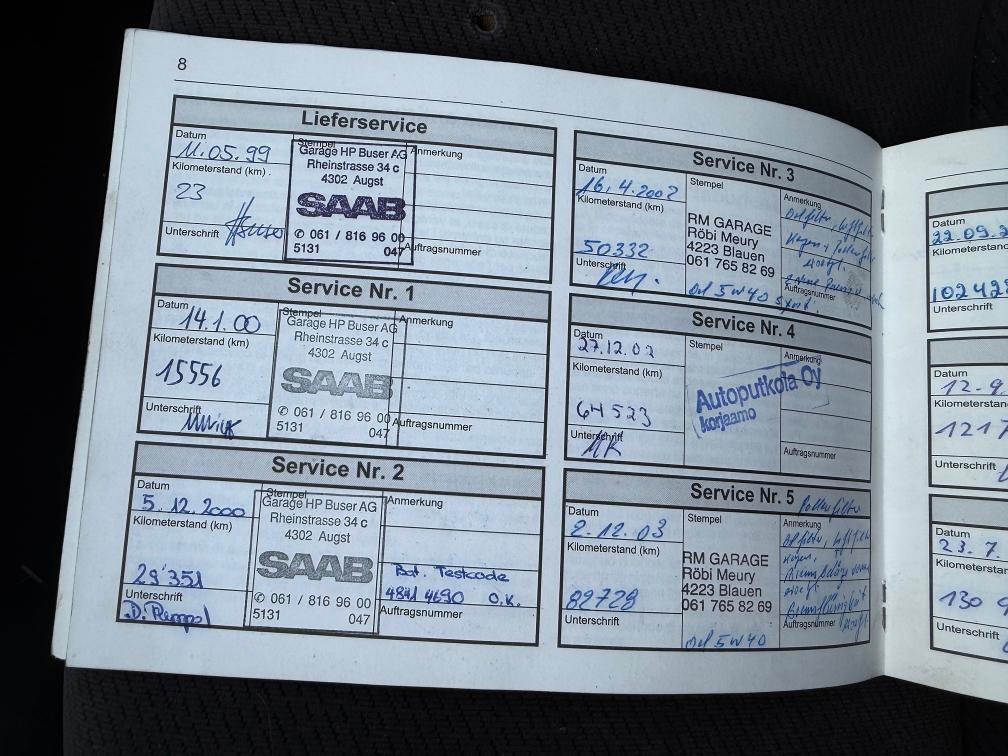 8
Lieferservice
Datum
11.05.99
Kilometerstand (km)
23
Unterschrift
Stempel
Garage HP Buser AG
Rheinstrasse 34 c
4302 Augst
SAAB
✆ 061 / 816 96 00
5131 047
Anmerkung
Auftragsnummer
Service Nr. 1
Datum
14.1.00
Kilometerstand (km)
15556
Unterschrift
Stempel
Garage HP Buser AG
Rheinstrasse 34 c
4302 Augst
SAAB
✆ 061 / 816 96 00
5131 047
Anmerkung
Auftragsnummer
Service Nr. 2
Datum
5.12.2000
Kilometerstand (km)
29'351
Unterschrift
Stempel
Garage HP Buser AG
Rheinstrasse 34 c
4302 Augst
SAAB
✆ 061 / 816 96 00
5131 047
Anmerkung
Bat. Testcode
4841 4690 O.K.
Auftragsnummer
Service Nr. 3
Datum
16.4.2002
Kilometerstand (km)
50332
Unterschrift
Stempel
RM GARAGE
Röbi Meury
4223 Blauen
061 765 82 69
Oel 5W40
Anmerkung
Oelfilter, Luftfilter
Auftragsnummer
Service Nr. 4
Datum
27.12.02
Kilometerstand (km)
64523
Unterschrift
Stempel
Autoputkola Oy
korjaamo
Anmerkung
Auftragsnummer
Service Nr. 5
Datum
2.12.03
Kilometerstand (km)
82728
Unterschrift
Stempel
RM GARAGE
Röbi Meury
4223 Blauen
061 765 82 69
Oel 5W40
Pollenfilter
Anmerkung
Oelfilter, Luftfilter
Auftragsnummer
Datum
22.09.2
Kilometerstand
102428
Unterschrift
Datum
12.9.
Kilometerstan
1217
Unterschrift
Datum
23.7
Kilometerstan
130
Unterschrift